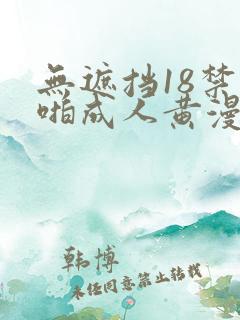 無遮挡18禁
啪成人黄漫
韩博
未任同意禁止转载